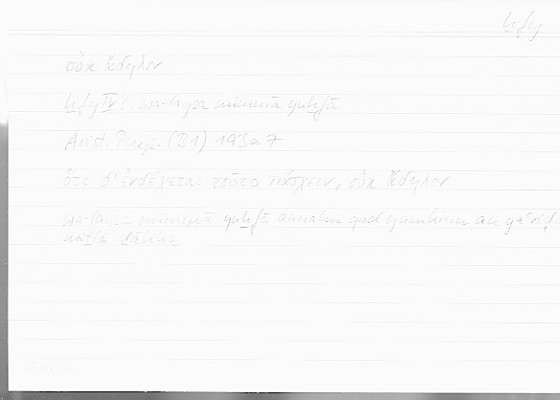 ḫfy
οὐκ ἄδηλον
ḫfy IV?: wa-laysa mimmā yuḫfā
Arist. Phys. (B1) 193a7
ὅτι δ' ἐνδέχεται τοῦτο πάσχειν, οὐκ ἄδηλον
wa-laysa mimmā yuḫfā annahu qad yumkinu an yaʿriḍ
miṯla ḏālika